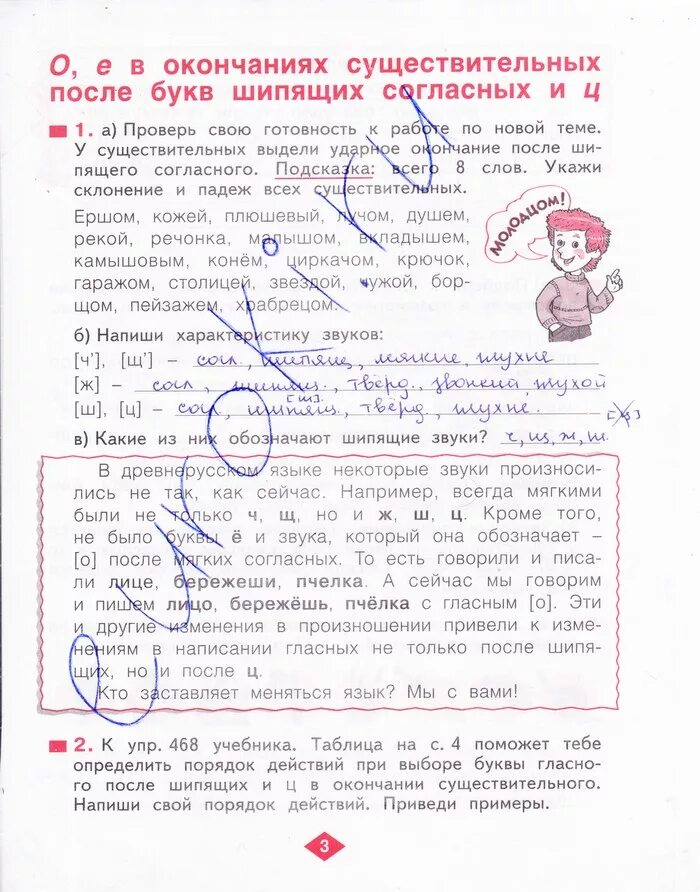 О, е в окончаниях существительных
после букв шипящих согласных и ц
1. а) Проверь свою готовность к работе по новой теме.
У существительных выдели ударное окончание после ши-
пящего согласного. Подсказка: всего 8 слов. Укажи
склонение и падеж всех существительных.
Ершом, кожей, плюшевый, лучом, душем,
рекой, речонка, малышом, вкладышем,
камышовым, конём, циркачом, крючок,
гаражом, столицей, звездой, чужой, бор-
щом, пейзажем, храбрецом.
МОЛОДЦОМ!
б) Напиши характеристику звуков:
[ч’], [щ’] – согл., шипящ, мягкие, глухие
[ж] – согл, шипящ., твёрд, звонкий, глухой
[ш].
[ш], [ц] – согл, шипящ, твёрд, глухие.
в) Какие из них обозначают шипящие звуки? ч, щ, ж, ш.
В древнерусском языке некоторые звуки произноси-
лись не так, как сейчас. Например, всегда мягкими
были не только ч, щ, но и ж, ш, ц. Кроме того,
не было буквы ё и звука, который она обозначает –
[о] после мягких согласных. То есть говорили и писа-
ли лице, бережеши, пчелка. А сейчас мы говорим
и пишем лицо, бережёшь, пчёлка с гласным [о]. Эти
и другие изменения в произношении привели к изме-
нениям в написании гласных не только после шипя-
щих, но и после ц.
Кто заставляет меняться язык? Мы с вами!
2. К упр. 468 учебника. Таблица на с. 4 поможет тебе
определить порядок действий при выборе буквы гласно-
го после шипящих и ц в окончании существительного.
Напиши свой порядок действий. Приведи примеры.
3